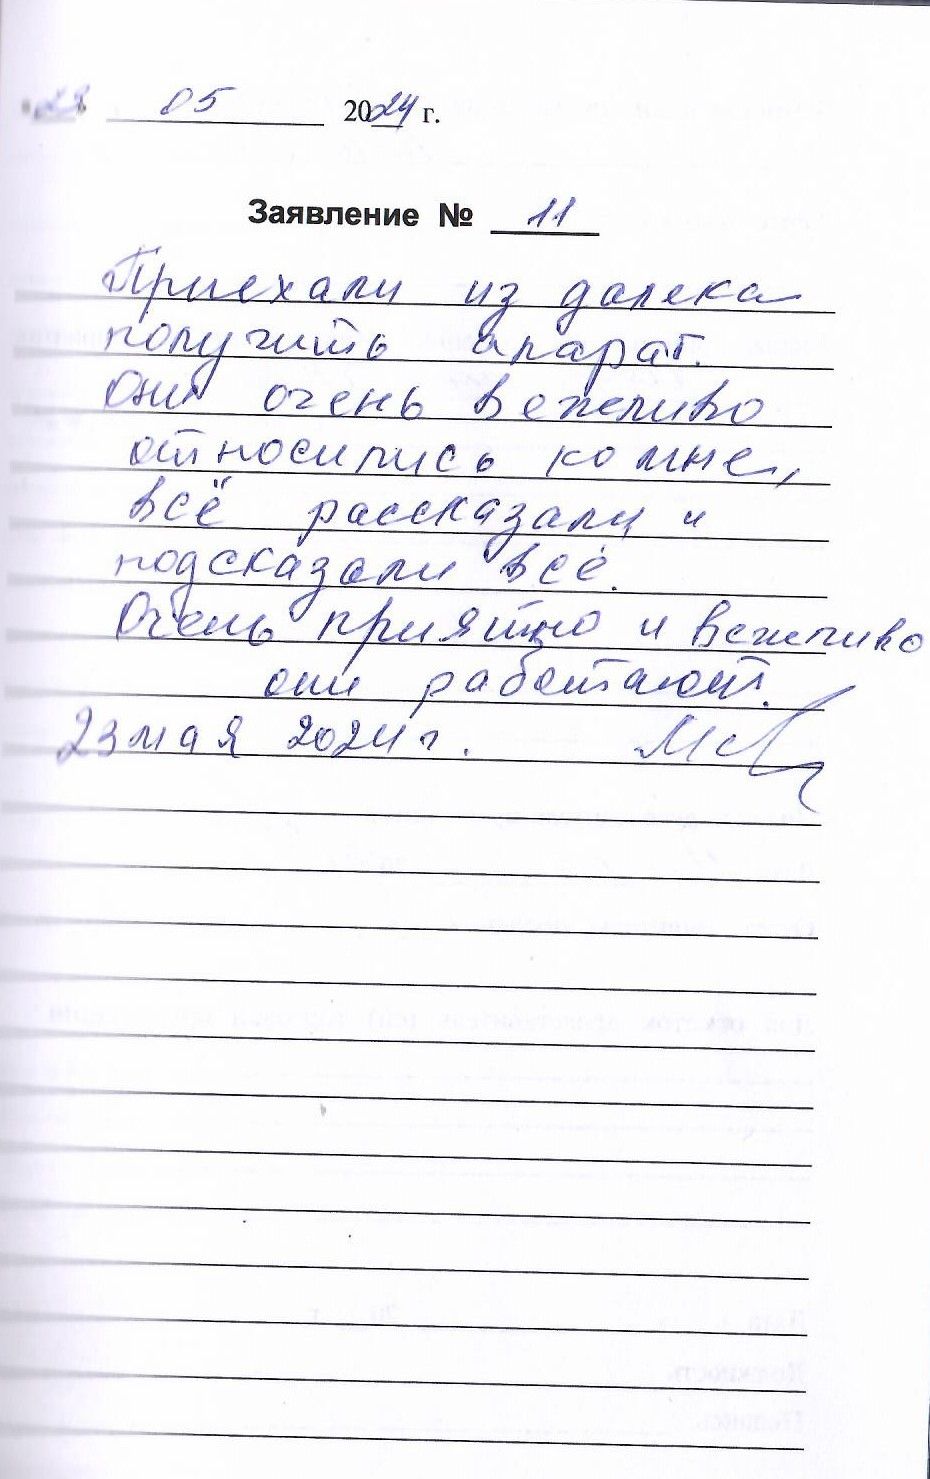 "23" 05 2024 г.
Заявление № 11
Приехали из далека
получить апарат.
Они очень вежливо
относились ко мне,
всё рассказали и
подсказали всё.
Очень приятно и вежливо
они работают.
23 мая 2024 г.